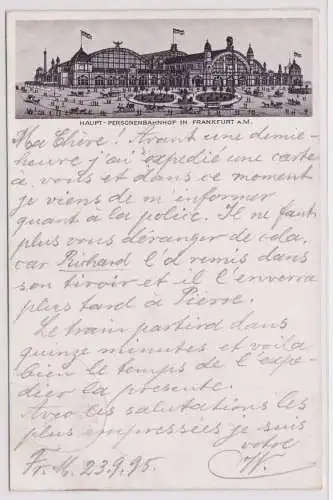 HAUPT-PERSONENBAHNHOF IN FRANKFURT A.M.
Ma Chère! Avant une demie-
heure j'ai expedié une carte
à vous et dans ce moment
je viens de m informer
quant à la police. Il ne faut
plus vous déranger de cela,
car Richard l'a remis dans
son tiroir et il l'enverra
plus tard à Pierre.
Le train partira dans
quinze minutes et voilà
bien le temps de l'expe-
dier la présente.
Avec les salutations les
plus impressées je suis
votre
Fr. M. 23.9.95. W.